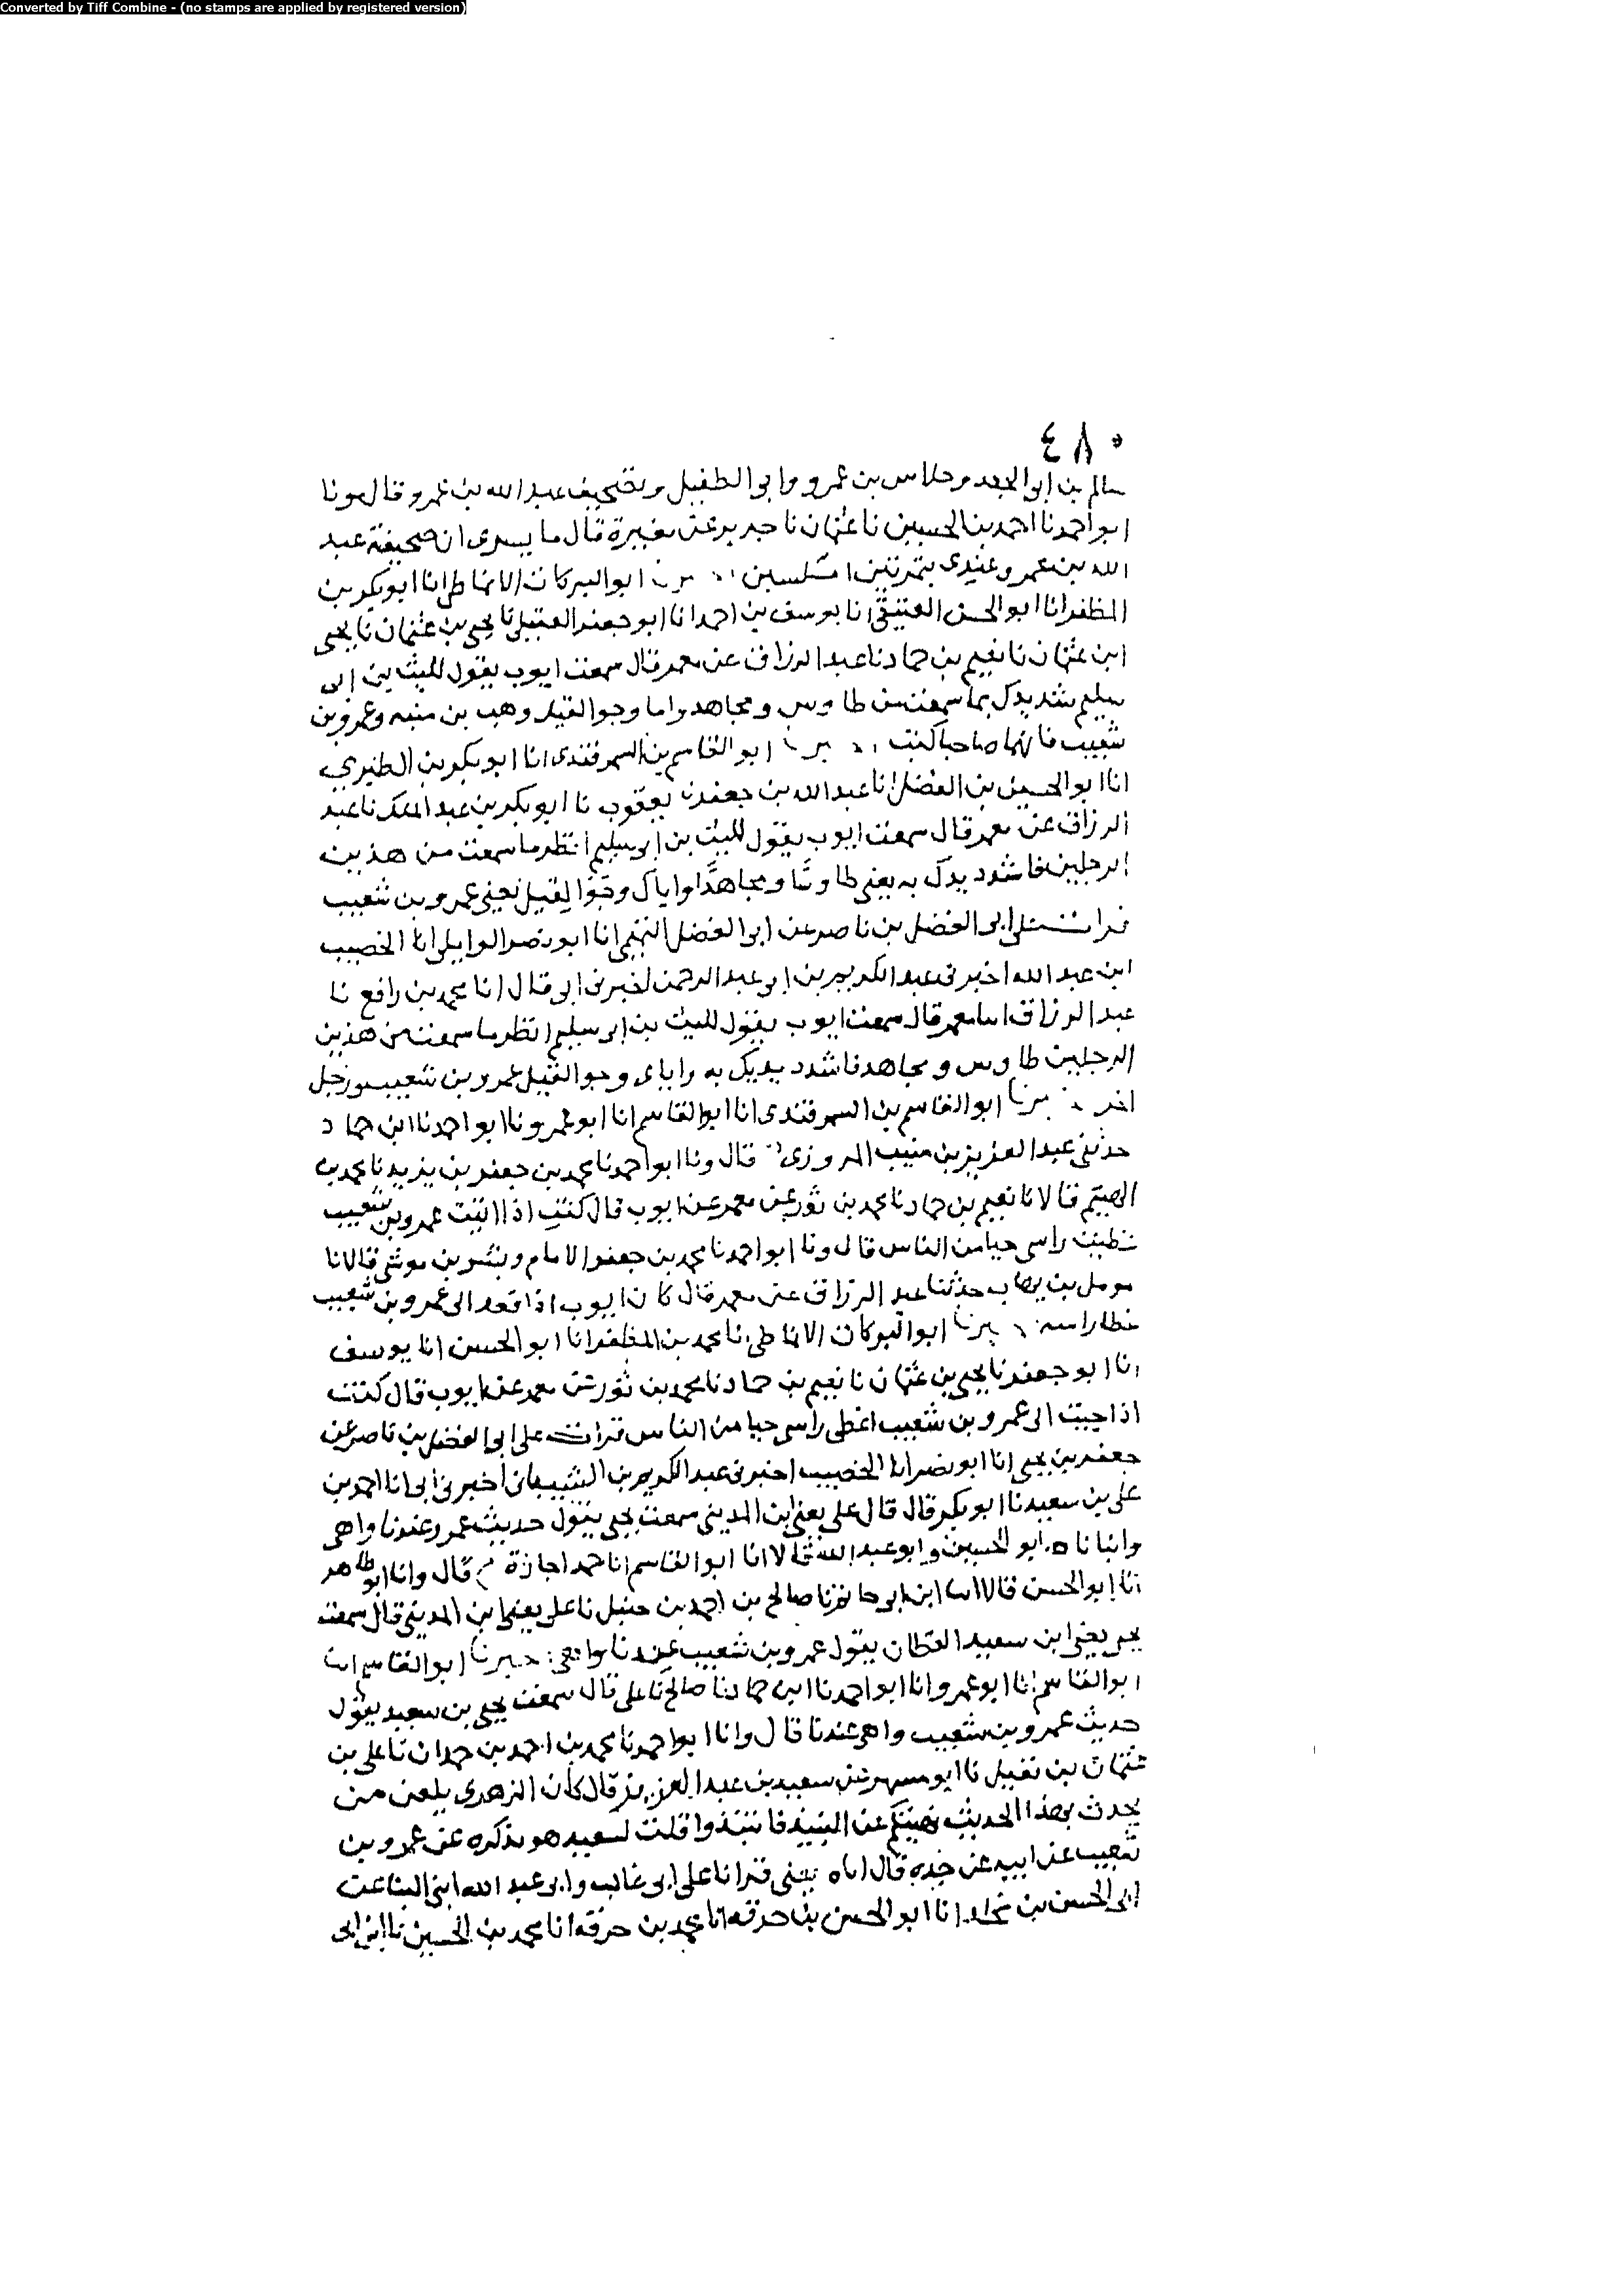 Converted by Tiff Combine - (no stamps are applied by registered version)
٤٨٠
سالم بن ابى الجعد وخلاس بن عمرو وابى الطفيل وبصحيفة عبد الله بن عمرو قال ونا
ابو احمد نا احمد بن الحسين نا عثمان نا جرير عن مغيرة قال ما يسرى ان صحيفة عبد
الله بن عمرو عندى بتمرتين او فلسين ابو البركات الانماطى انا ابو بكر بن
المظفر انا ابو الحسن العتيقى انا يوسف بن احمد انا ابو جعفر العقيلى نا يحيى بن عثمان نا يحيى
ابن عثمان نا نعيم بن حماد نا عبد الرزاق عن معمر قال سمعت ايوب يقول لليث بن ابى
سليم شد يدك بما سمعت من طاوس ومجاهد واما وجوالقيك وهب بن منبه وعمرو بن
شعيب فانهما صاحبا كتب ابو القاسم بن السمرقندى انا ابو بكر بن الطبرى
انا ابو الحسين بن الفضل انا عبد الله بن جعفر نا يعقوب نا ابو بكر بن عبد الملك نا عبد
الرزاق عن معمر قال سمعت ايوب يقول لليث بن ابى سليم انظر ما سمعت من هذين
الرجلين فاشدد يدك به يعنى طاوسا ومجاهدا واياك وجوالقيك يعنى عمرو بن شعيب
قرات على ابى الفضل بن ناصر عن ابى الفضل التميمى انا ابو نصر الوايلى انا الخصيب
ابن عبد الله اخبرنى عبد الكريم بن ابى عبد الرحمن اخبرنى ابى قال انا محمد بن رافع نا
عبد الرزاق انا معمر قال سمعت ايوب يقول لليث بن ابى سليم انظر ما سمعت من هذين
الرجلين طاوس ومجاهد فاشدد يديك به واياى وجوالقيك عمرو بن شعيب ورجل
اخر ابو القاسم بن السمرقندى انا ابو القاسم انا ابو عمرو نا ابو احمد نا ابن حماد
حدثنى عبد العزيز بن منيب المروزى قال ونا ابو احمد نا محمد بن جعفر بن يزيد نا محمد بن
الهيثم قالا نا نعيم بن حماد نا محمد بن ثور عن معمر عن ايوب قال كنت اذا اتيت عمرو بن شعيب
غطيت راسى حيا من الناس قال ونا ابو احمد نا محمد بن جعفر الامام وبشر بن موسى قالا نا
مومل بن يهاب حدثنا عبد الرزاق عن معمر قال كان ايوب اذا قعد الى عمرو بن شعيب
غطا راسه ابو البركات الانماطى نا محمد بن المظفر انا ابو الحسن انا يوسف
انا ابو جعفر نا يحيى بن عثمان نا نعيم بن حماد نا محمد بن ثور عن معمر عن ايوب قال كنت
اذا جيت الى عمرو بن شعيب اغطى راسى حيا من الناس قرات على ابى الفضل بن ناصر عن
جعفر بن يحيى انا ابو نصر انا الخصيب اخبرنى عبد الكريم بن الشيبانى اخبرنى ابى انا احمد بن
على بن سعيد نا ابو بكر قال قال على يعنى ابن المدينى سمعت يحيى يقول حديث عمرو عندنا واهى
وانبانا ابو الحسين وابو عبد الله قالا انا ابو القاسم انا حمد اجازة قال وانا ابو طاهر
انا ابو الحسن قالا انا ابن ابى حاتم نا صالح بن احمد بن حنبل نا على يعنى ابن المدينى قال سمعت
يحيى يعنى ابن سعيد القطان يقول عمرو بن شعيب عندنا واهى اخبرنا ابو القاسم انا
ابو القاسم انا ابو عمرو انا ابو احمد نا ابن حماد نا صالح نا على قال سمعت يحيى بن سعيد يقول
حديث عمرو بن شعيب واهى عندنا قال وانا ابو احمد نا محمد بن احمد بن حمدان نا على بن
عثمان بن نفيل نا ابو مسهر عن سعيد بن عبد العزيز قال كان الزهرى يلعن من
يحدث بهذا الحديث نهيتكم عن النبيذ فانتبذوا قلت لسعيد هو يذكره عن عمرو بن
شعيب عن ابيه عن جده قال اياه يعنى قرانا على ابى غالب وابى عبد الله ابنى البنا عن
ابى الحسن بن مخلد انا ابو الحسن بن خزفه انا محمد بن خزفه انا محمد بن الحسين نا ابن ابى